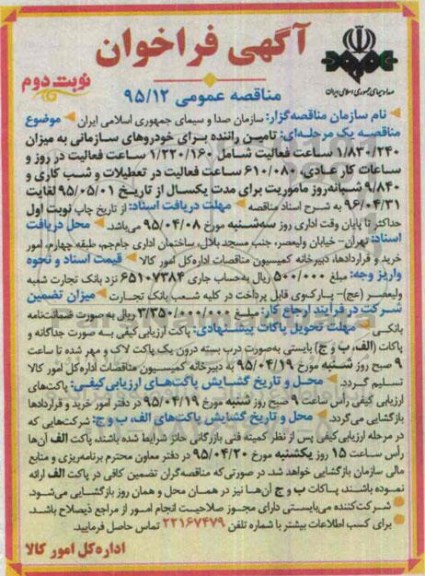 صدا و سیمای جمهوری اسلامی ایران
آگهی فراخوان
نوبت دوم
مناقصه عمومی ۹۵/۱۲
نام سازمان مناقصه‌گزار: سازمان صدا و سیمای جمهوری اسلامی ایران موضوع
مناقصه یک مرحله‌ای: تامین راننده برای خودروهای سازمانی به میزان
۱/۸۳۰/۲۴۰ ساعت فعالیت شامل ۱/۲۲۰/۱۶۰ ساعت فعالیت در روز و
ساعات کار عادی، ۶۱۰/۰۸۰ ساعت فعالیت در تعطیلات و شب کاری و
۹/۸۴۰ شبانه‌روز ماموریت برای مدت یکسال از تاریخ ۹۵/۰۵/۰۱ لغایت
۹۶/۰۴/۳۱ به شرح اسناد مناقصه مهلت دریافت اسناد: از تاریخ چاپ نوبت اول
حداکثر تا پایان وقت اداری روز سه‌شنبه مورخ ۹۵/۰۴/۰۸ می‌باشد. محل دریافت
اسناد: تهران- خیابان ولیعصر، جنب مسجد بلال، ساختمان اداری جام‌جم، طبقه چهارم، امور
خرید و قراردادها، دبیرخانه کمیسیون مناقصات اداره‌کل امور کالا قیمت اسناد و نحوه
واریز وجه: مبلغ ۵۰۰/۰۰۰ ریال به‌حساب جاری ۶۵۱۰۷۳۸۴ نزد بانک تجارت شعبه
ولیعصر (عج)- پارک‌وی قابل پرداخت در کلیه شعب بانک تجارت میزان تضمین
شرکت در فرآیند ارجاع کار: مبلغ ۳/۳۵۰/۰۰۰/۰۰۰ ریال به صورت ضمانتنامه
بانکی. مهلت تحویل پاکات پیشنهادی: پاکت ارزیابی کیفی به صورت جداگانه و
پاکات (الف، ب و ج) بایستی به‌صورت درب بسته درون یک پاکت لاک و مهر شده تا ساعت
۹ صبح روز شنبه مورخ ۹۵/۰۴/۱۹ به دبیرخانه کمیسیون مناقصات اداره‌کل امور کالا
تسلیم گردد. محل و تاریخ گشایش پاکت‌های ارزیابی کیفی: پاکت‌های
ارزیابی کیفی رأس ساعت ۹ صبح روز شنبه مورخ ۹۵/۰۴/۱۹ در دفتر امور خرید و قراردادها
بازگشایی می‌گردد. محل و تاریخ گشایش پاکت‌های الف، ب و ج: شرکت‌هایی که
در مرحله ارزیابی کیفی پس از نظر کمیته فنی بازرگانی حائز شرایط شده باشند، پاکت الف آن‌ها
رأس ساعت ۱۵ روز یکشنبه مورخ ۹۵/۰۴/۲۰ در دفتر معاون محترم برنامه‌ریزی و منابع
مالی سازمان بازگشایی خواهد شد. در صورتی‌که مناقصه‌گران تضمین کافی در پاکت الف ارائه
نموده باشند، پاکات ب و ج آن‌ها نیز در همان محل و همان روز بازگشایی می‌شود.
شرکت‌کننده می‌بایستی دارای مجوز صلاحیت انجام امور از مراجع ذیصلاح باشد.
برای کسب اطلاعات بیشتر با شماره تلفن ۲۲۱۶۷۴۷۹ تماس حاصل فرمایید.
اداره‌کل امور کالا